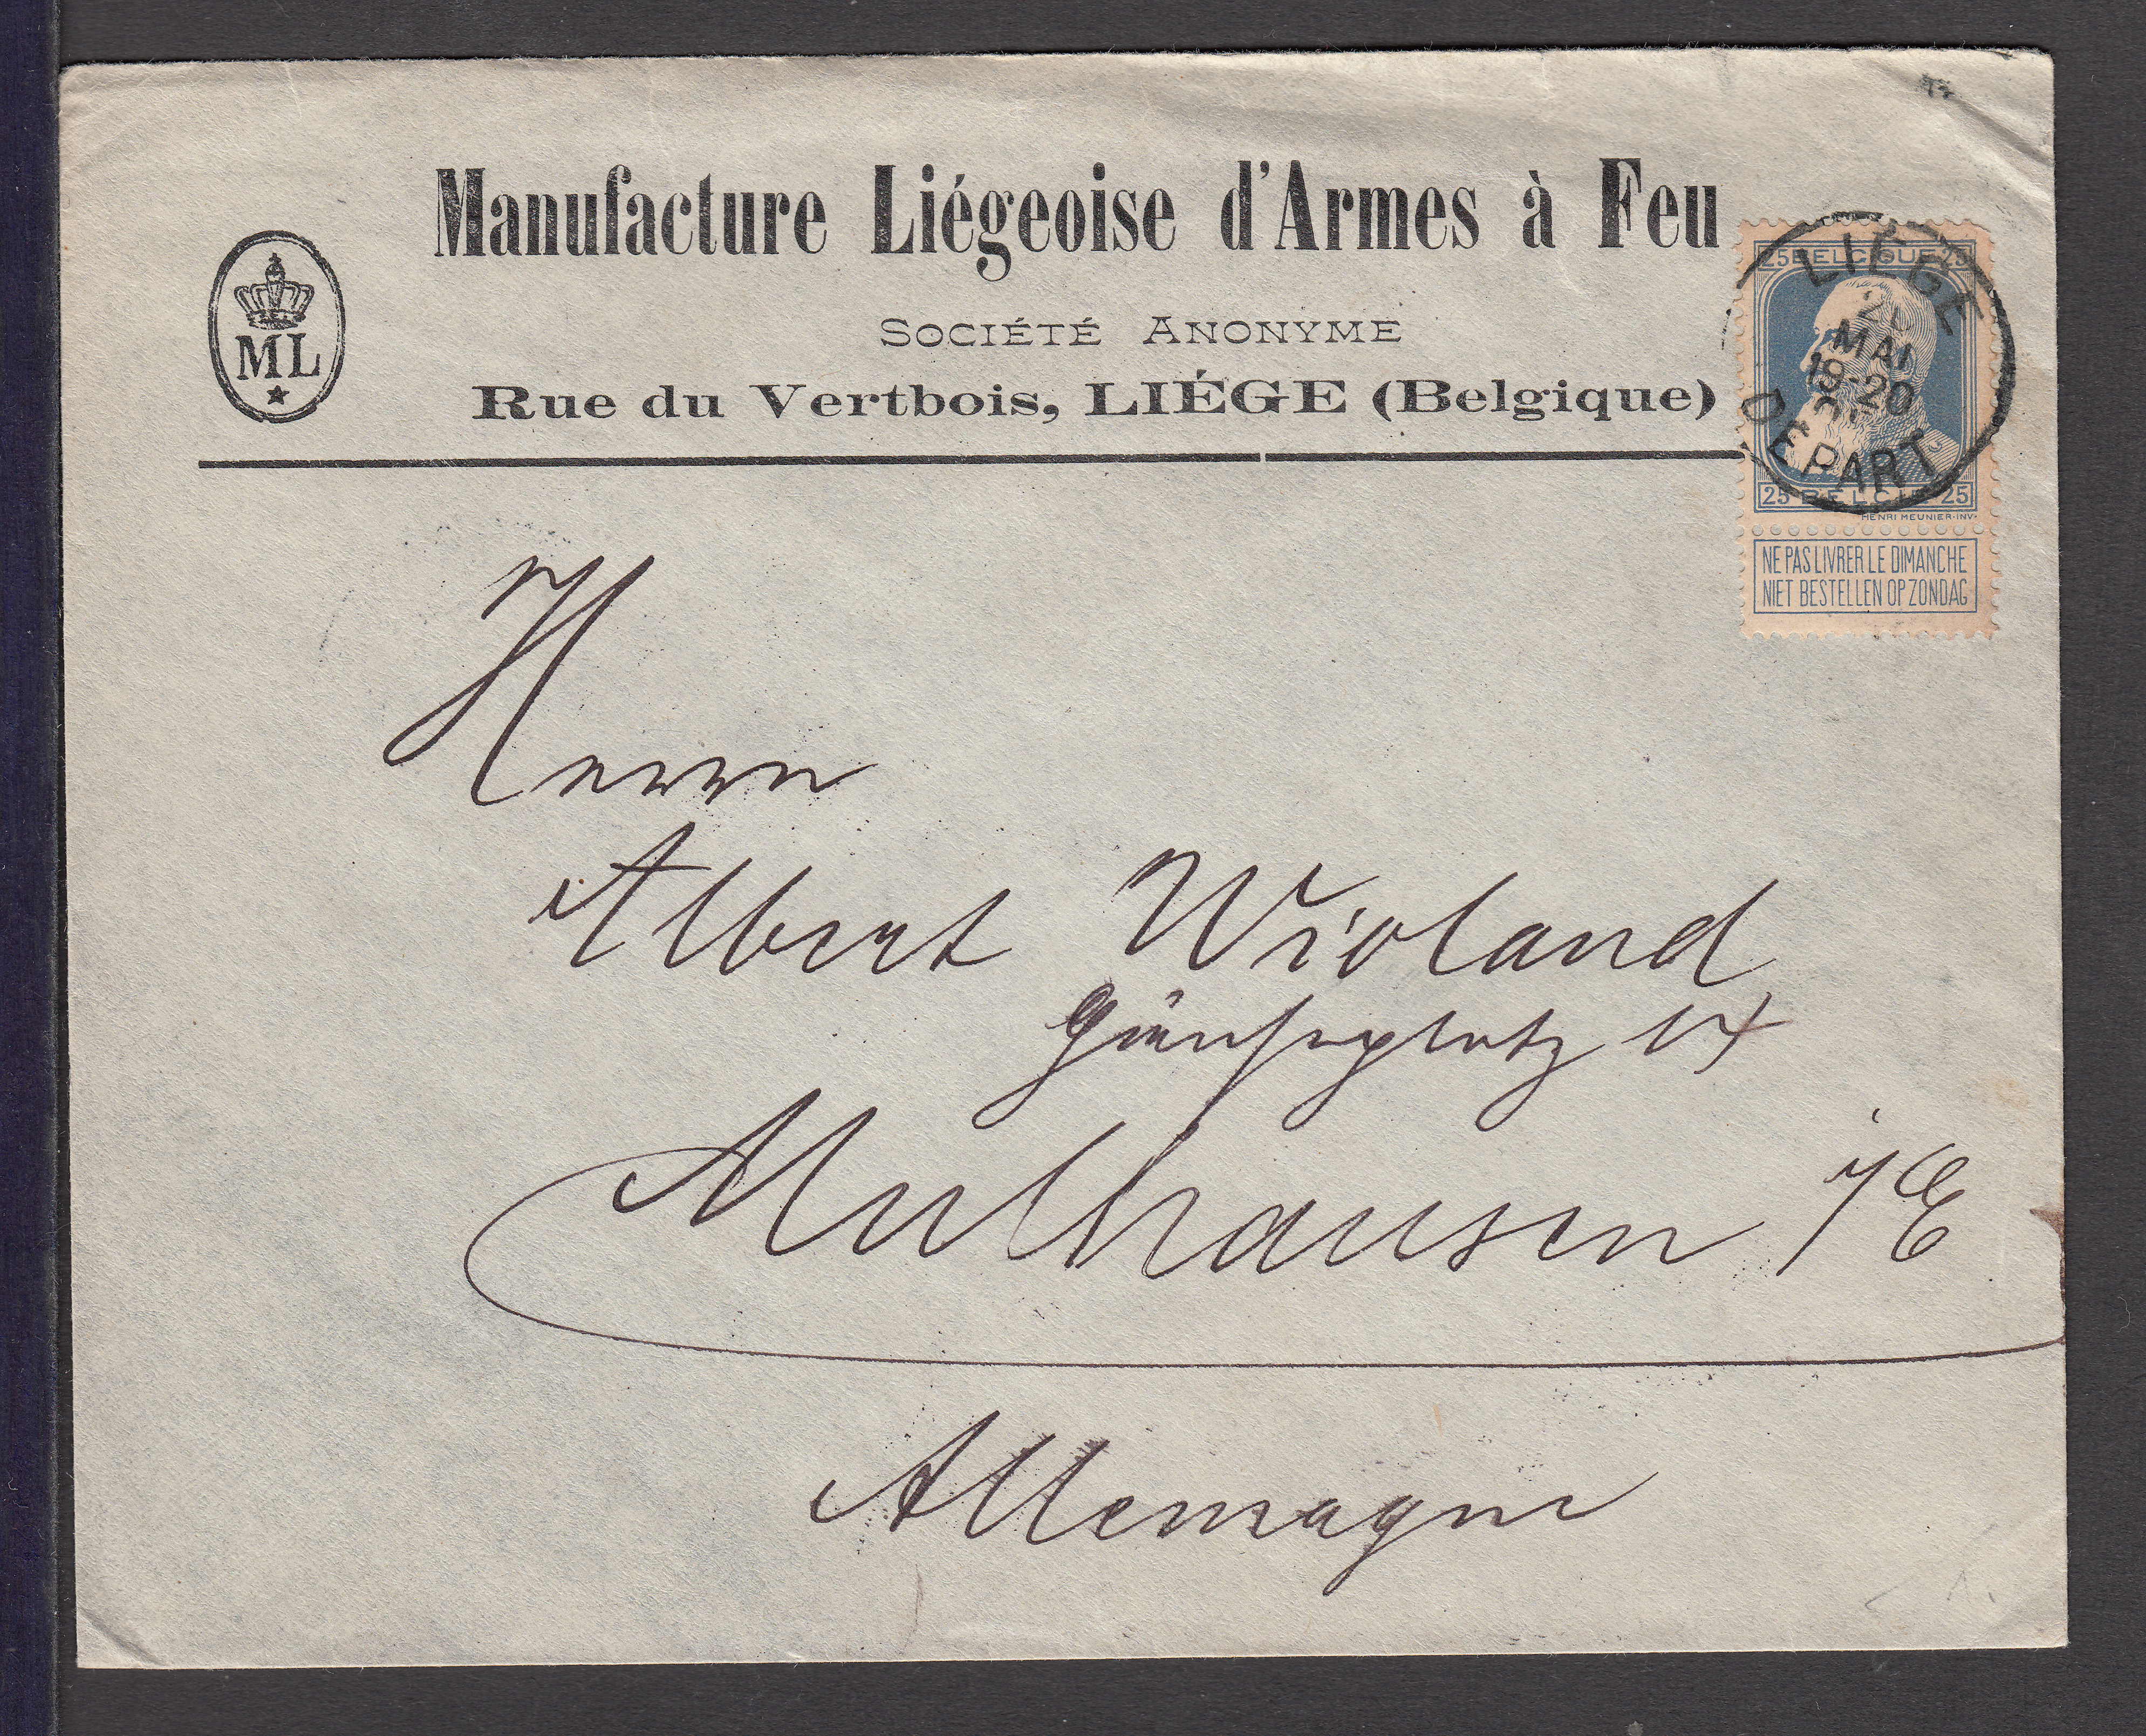 Manufacture Liégeoise d'Armes à Feu
ML
SOCIÉTÉ ANONYME
Rue du Vertbois, LIÉGE (Belgique)
25 BELGIQUE 25
LIÉGE
MAI
19-20
DEPART
25 BELGIE 25
HENRI MEUNIER·INV·
NE PAS LIVRER LE DIMANCHE
NIET BESTELLEN OP ZONDAG
Herrn
Albert Wioland
Mulhausen i/E
Allemagne